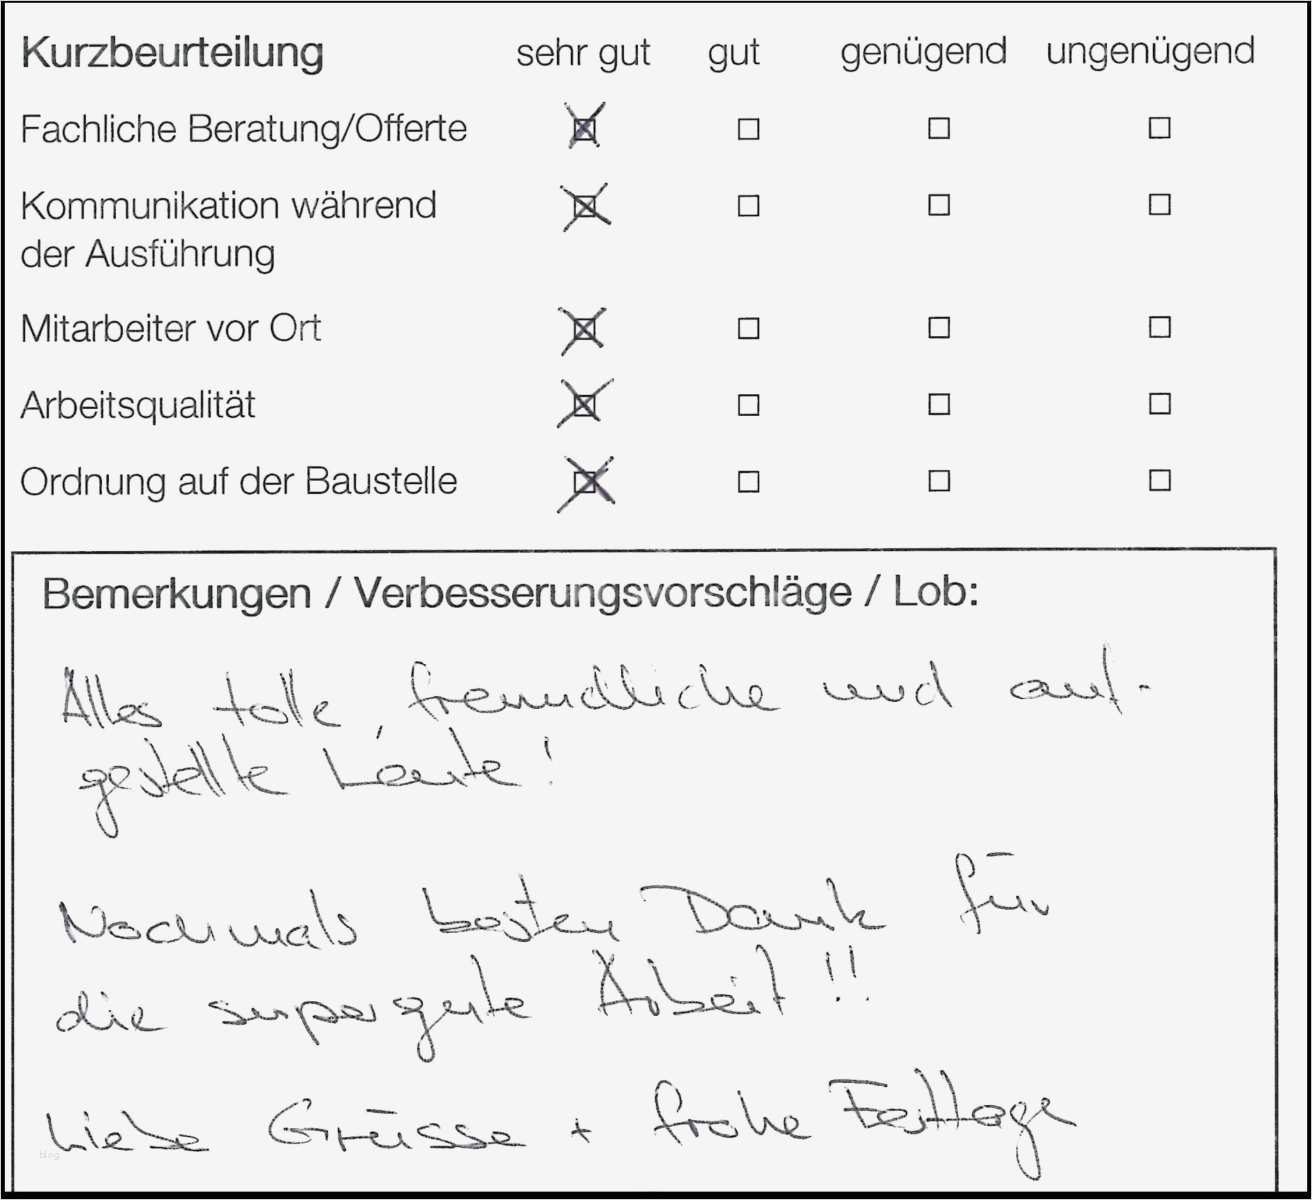 Kurzbeurteilung sehr gut gut genügend ungenügend
Fachliche Beratung/Offerte
Kommunikation während
der Ausführung
Mitarbeiter vor Ort
Arbeitsqualität
Ordnung auf der Baustelle
Bemerkungen / Verbesserungsvorschläge / Lob:
Alles tolle, freundliche und auf-
gestellte Leute!
Nochmals besten Dank für
die supergute Arbeit!!
Liebe Grüsse + frohe Festtage
blog